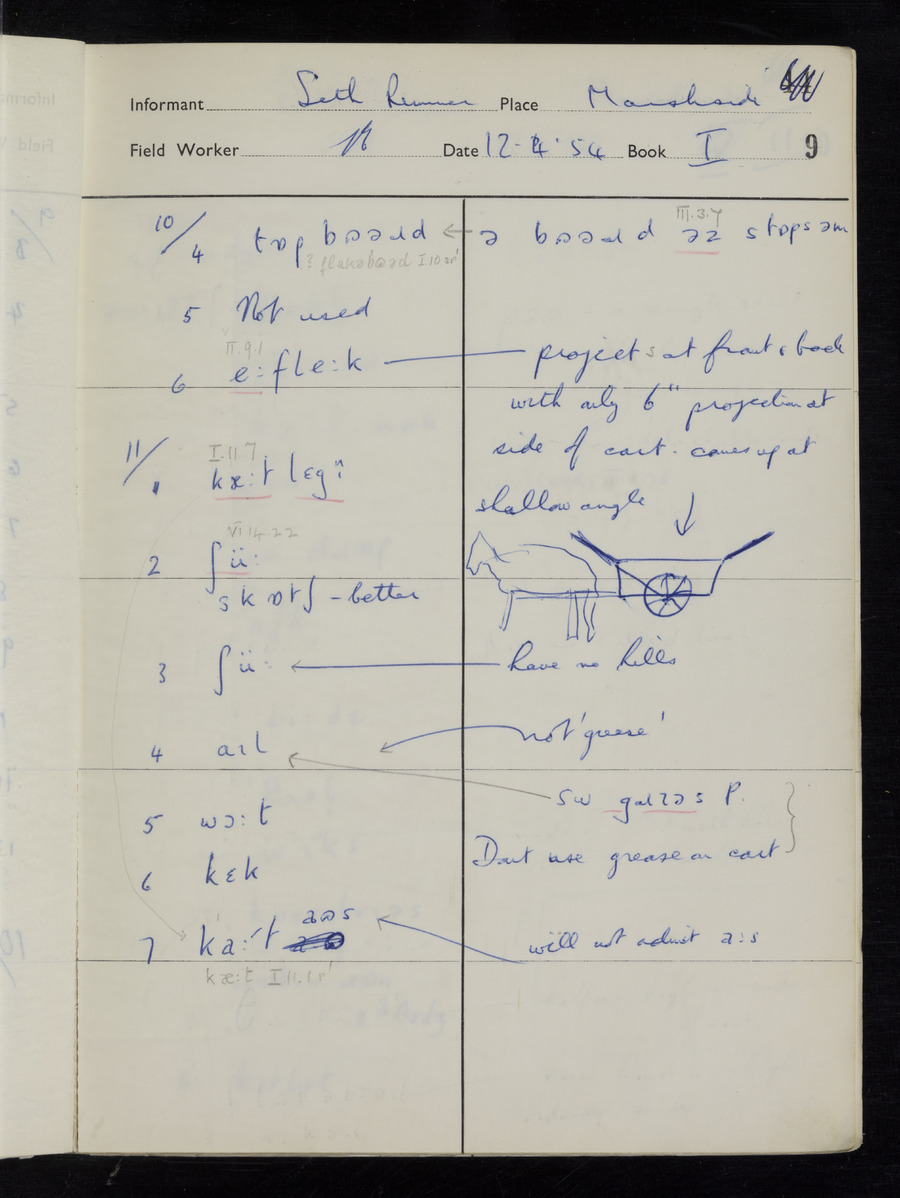 Informant Seth Rimmer Place Marshside
Field Worker Date 12·4·54 Book I 9
10/4 tɒp bɔəɹd ← ə bɔəɹd əz stɒps əm
III.3.7
? flakəbɔəd I.10 ar'
5 Not used
II.9.1
6 e:fle:k — projects at front & back
with only 6" projection at
side of cart. comes up at
shallow angle
I.11.7
11/1 kæ:t lɛgɪ̈
VI 14.22
2 ʃü:
skɒtʃ - better
3 ʃü: ← have no hills
4 aɪl not 'grease'
sw gaɪzəs P.
5 wɔ:t
Dont use grease on cart
6 kɛk
7 ka:ʴt aəs will not admit a:s
kæ:t I.11.1 r'